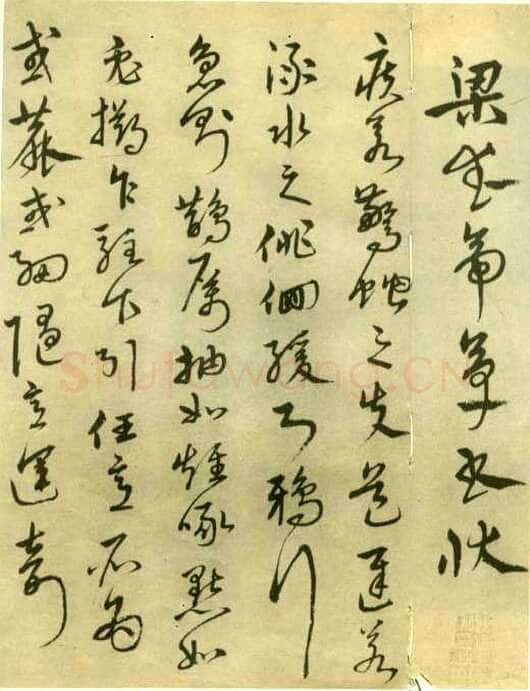 梁武帝草書狀
疾若驚蛇之失道遲若
淥水之徘徊緩則鴉行
急則鵲厲抽如雉啄點如
兔擲乍駐乍引任意所為
或麁或細隨意運奇
Shufawang.CN